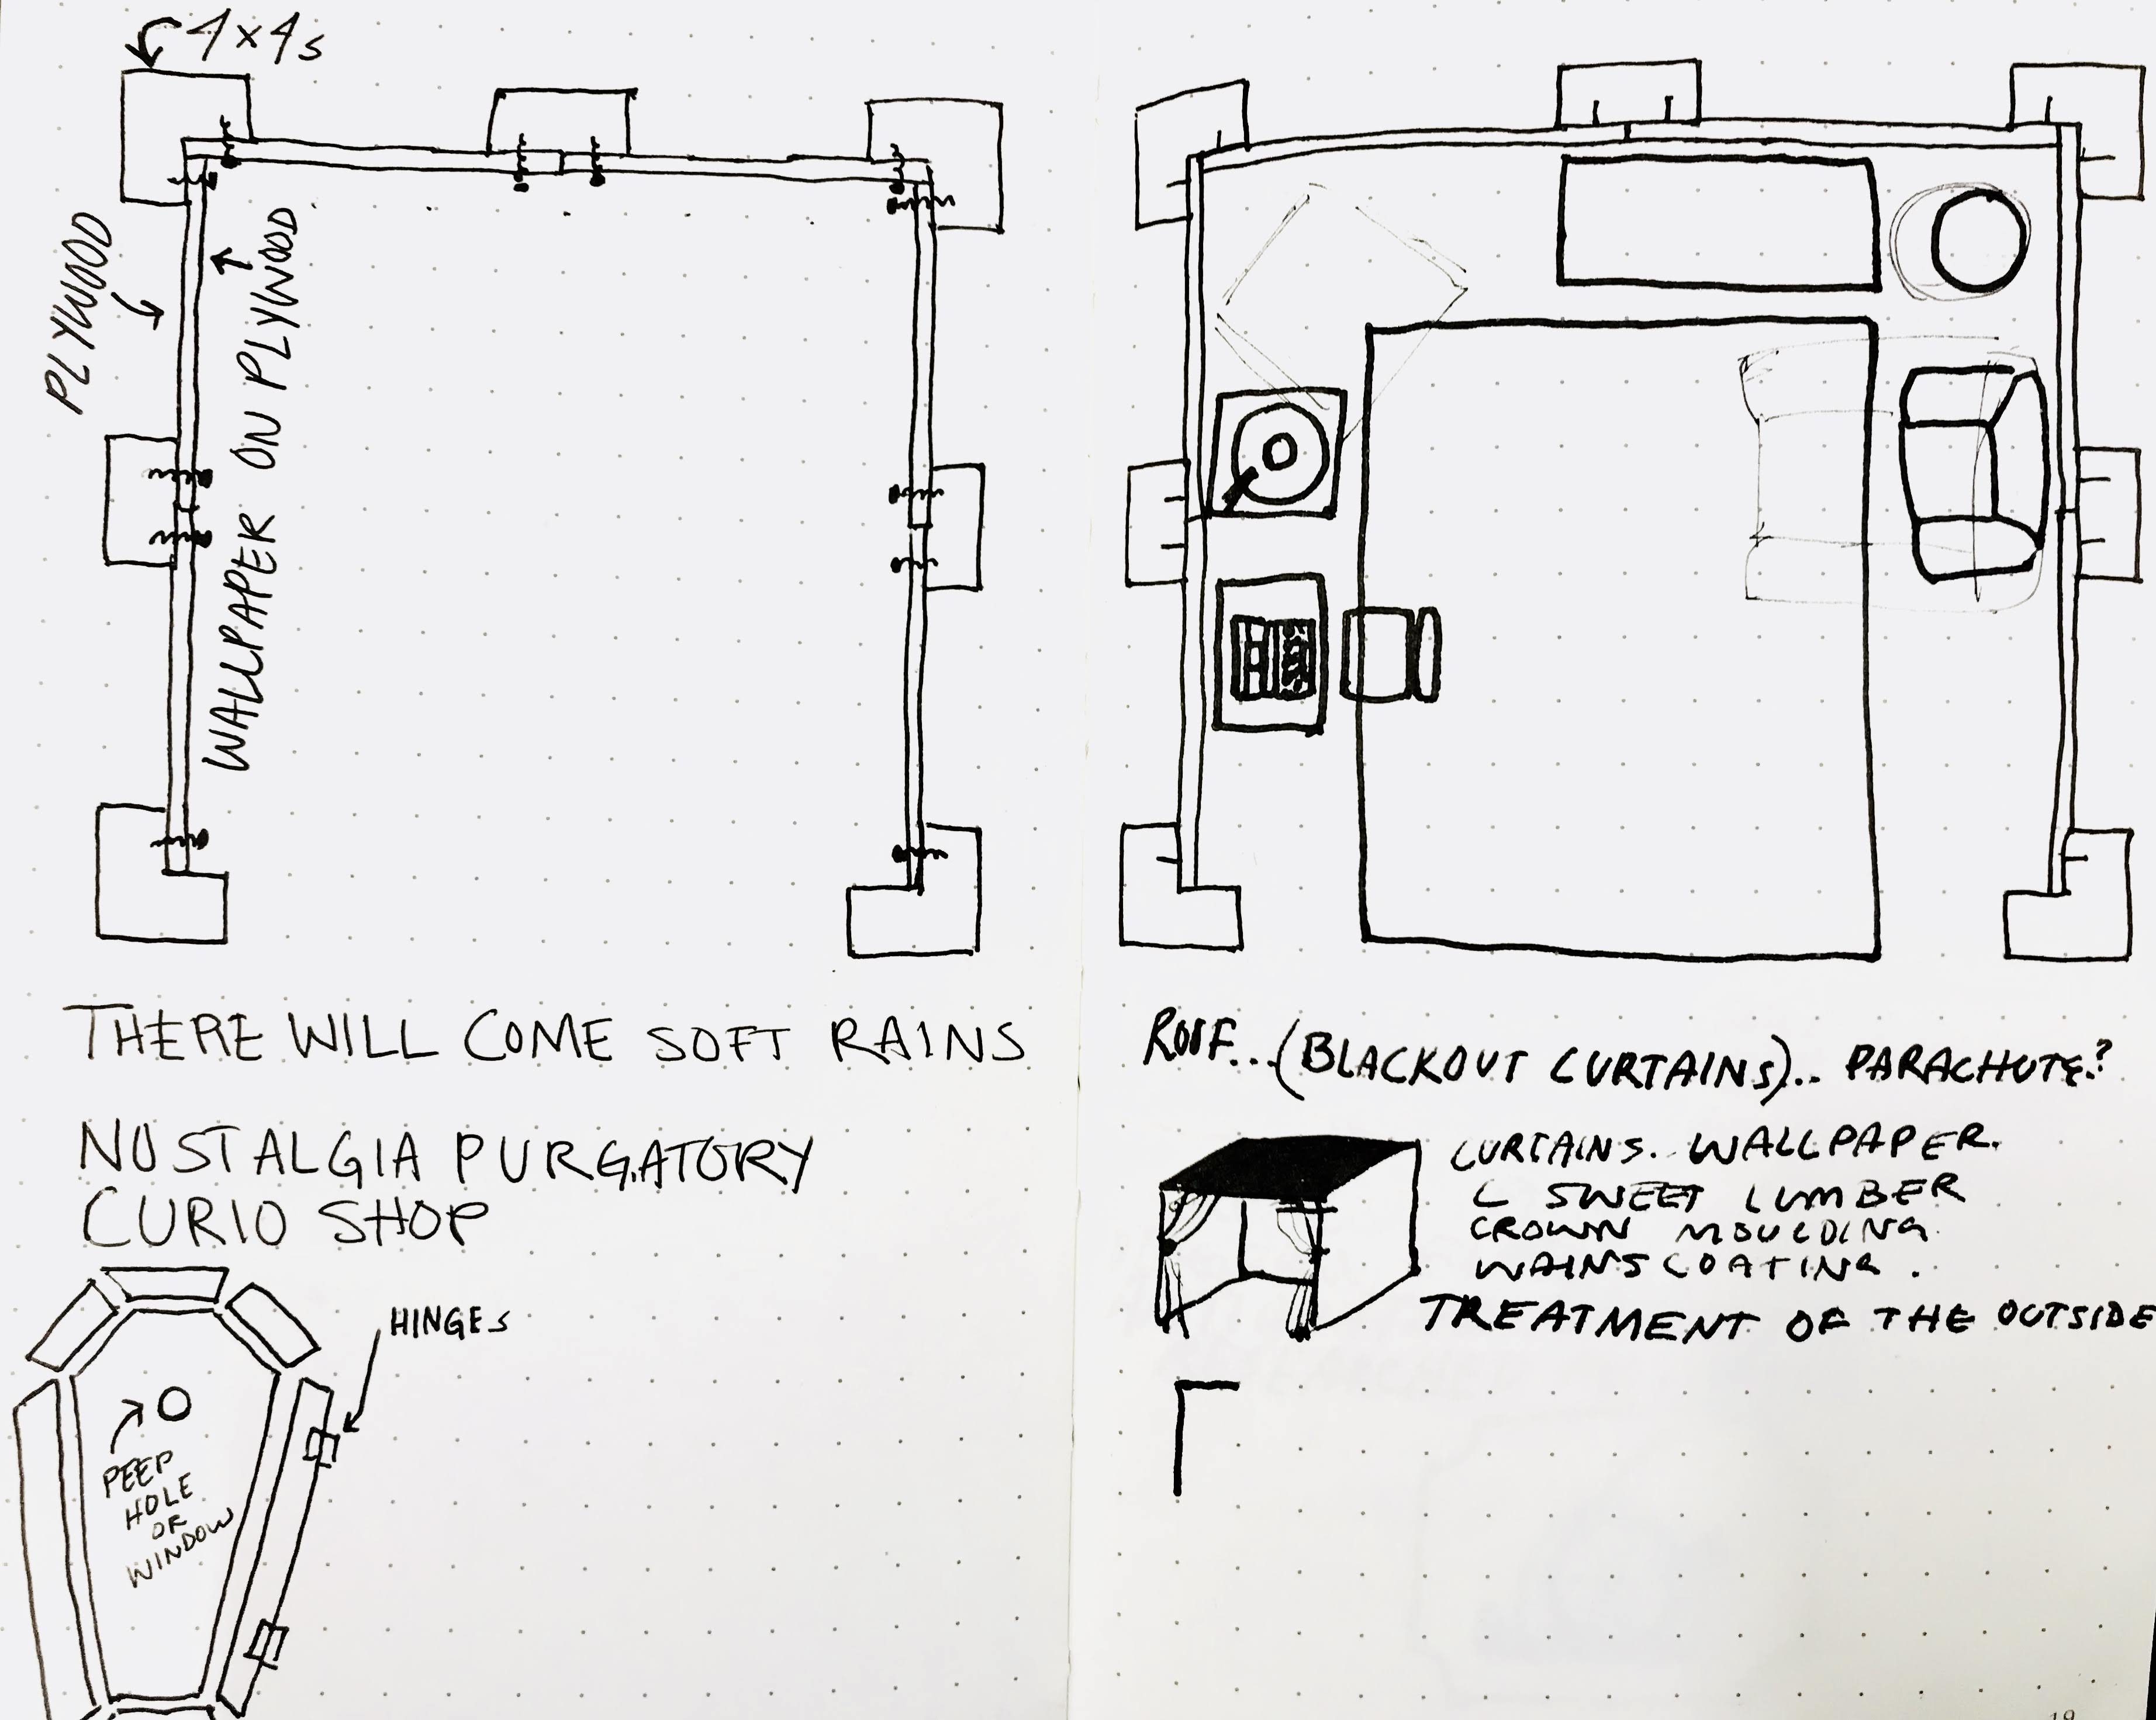 4x4s
PLYWOOD
WALLPAPER ON PLYWOOD
THERE WILL COME SOFT RAINS
NOSTALGIA PURGATORY
CURIO SHOP
HINGES
PEEP
HOLE
OR
WINDOW
ROOF...(BLACKOUT CURTAINS)... PARACHUTE?
CURTAINS. WALLPAPER.
SWEET LUMBER
CROWN MOULDING
WAINSCOATING.
TREATMENT OF THE OUTSIDE
19